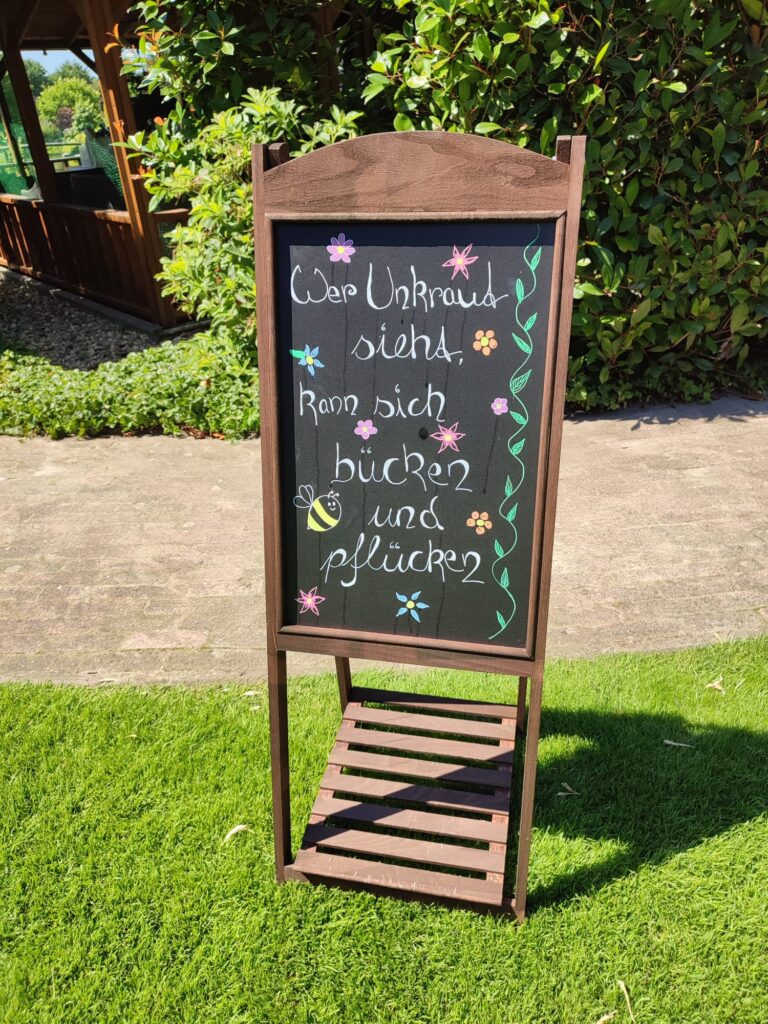 Wer Unkraut
sieht,
kann sich
bücken
und
pflücken